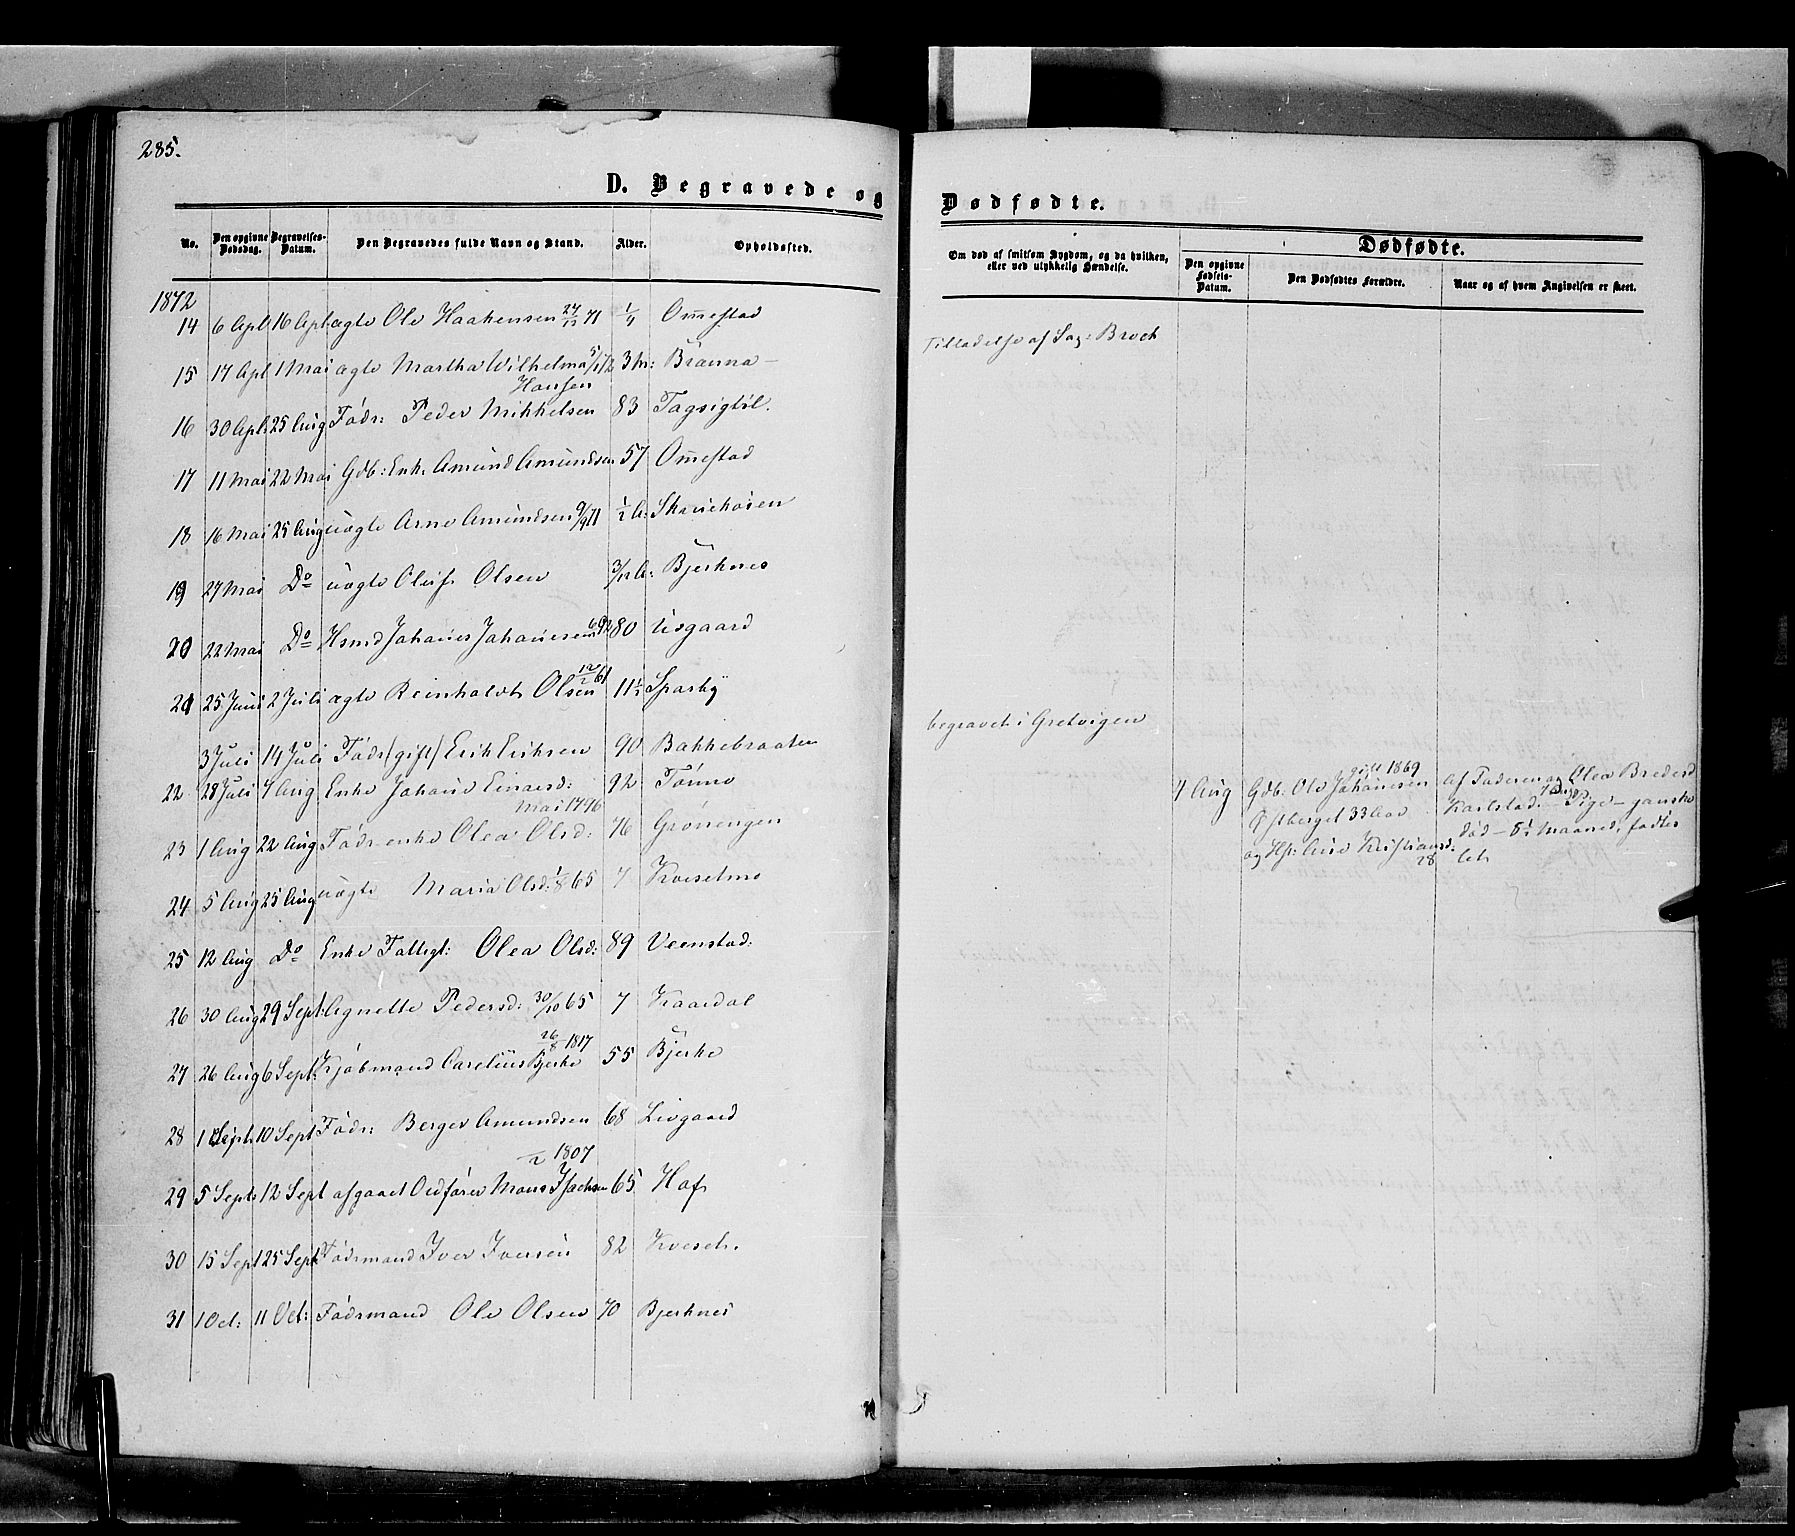 285.
D. Begravede og
No. Den opgivne Dødsdag. Begravelses-Datum. Den Begravedes fulde Navn og Stand. Alder. Opholdssted.
1872
14 6 Apl 16 Apl ægte Ole Haakensen 27/12 71 1/4 Ommestad
15 17 Apl 1 Mai ægte Martha Wilhelma 5/1 72 3 m: Brænna
Hansen
16 30 Apl 25 Aug Føds: Peder Mikkelsen 83
17 11 Mai 22 Mai Gdb: Enk. Amund Amundsen 57 Ommestad
18 16 Mai 25 Aug uægte Arne Amundsen 9/9 71 1/2 A:
19 27 Mai Do uægte Oluf Olsen 3/12 A: Bjerknes
20 22 Mai Do Hsmd Johanes Johanesen 80 Lisgaard
21 25 Juni 2 Juli ægte Reinholdt Olsen 12/2 61 11 1/2 Sparby
3 Juli 14 Juli Føds (gift) Erik Eriksen 90 Bakkebraaten
22 28 Juli 4 Aug Enke Johane Einarsd: 92 Tømte
Mai 1796
23 1 Aug 22 Aug Føds enke Olea Olsd: 76 Grønengen
24 5 Aug 25 Aug uægte Maria Olsd: 1/8 65 7 Kveselmo
25 12 Aug Do Enke Fattigl: Olea Olsd: 89 Veenstad:
26 30 Aug 29 Sept: Agnette Pedersd: 30/10 65 7 Kaardal
26/8 1817
27 26 Aug 6 Sept: Kjøbmand Carelius Bjerke 55 Bjerke
28 1 Sept. 10 Sept Føds: Berger Amundsen 68 Lisgaard
1/2 1807
29 5 Sept: 12 Sept afgaaet Ordfører Mons Isachsen 65 Hof
30 15 Sept 25 Sept Fødsmand Iver Iversen 82 Kveset.
31 1 Oct: 11 Oct: Fødsmand Ole Olsen 70 Bjerknes
Dødfødte.
Om død af smitsom Sygdom, og da hvilken, eller ved ulykkelig Hændelse.
Dødfødte.
Den opgivne Fødsels-Datum. Den Dødfødtes Forældre. Naar og af hvem Angivelsen er skeet.
Tilladelse af Sag: Broch
begravet i Gretvigen
gift 1869
4 Aug Gdb: Ole Johanesen af Faderen og Olea Bredesd
Østberget 33 Aar Karlstad. Pige – ganske
og Hst: Anne Kristiansd: død – 8 1/2 Maaned, fødtes
28 let